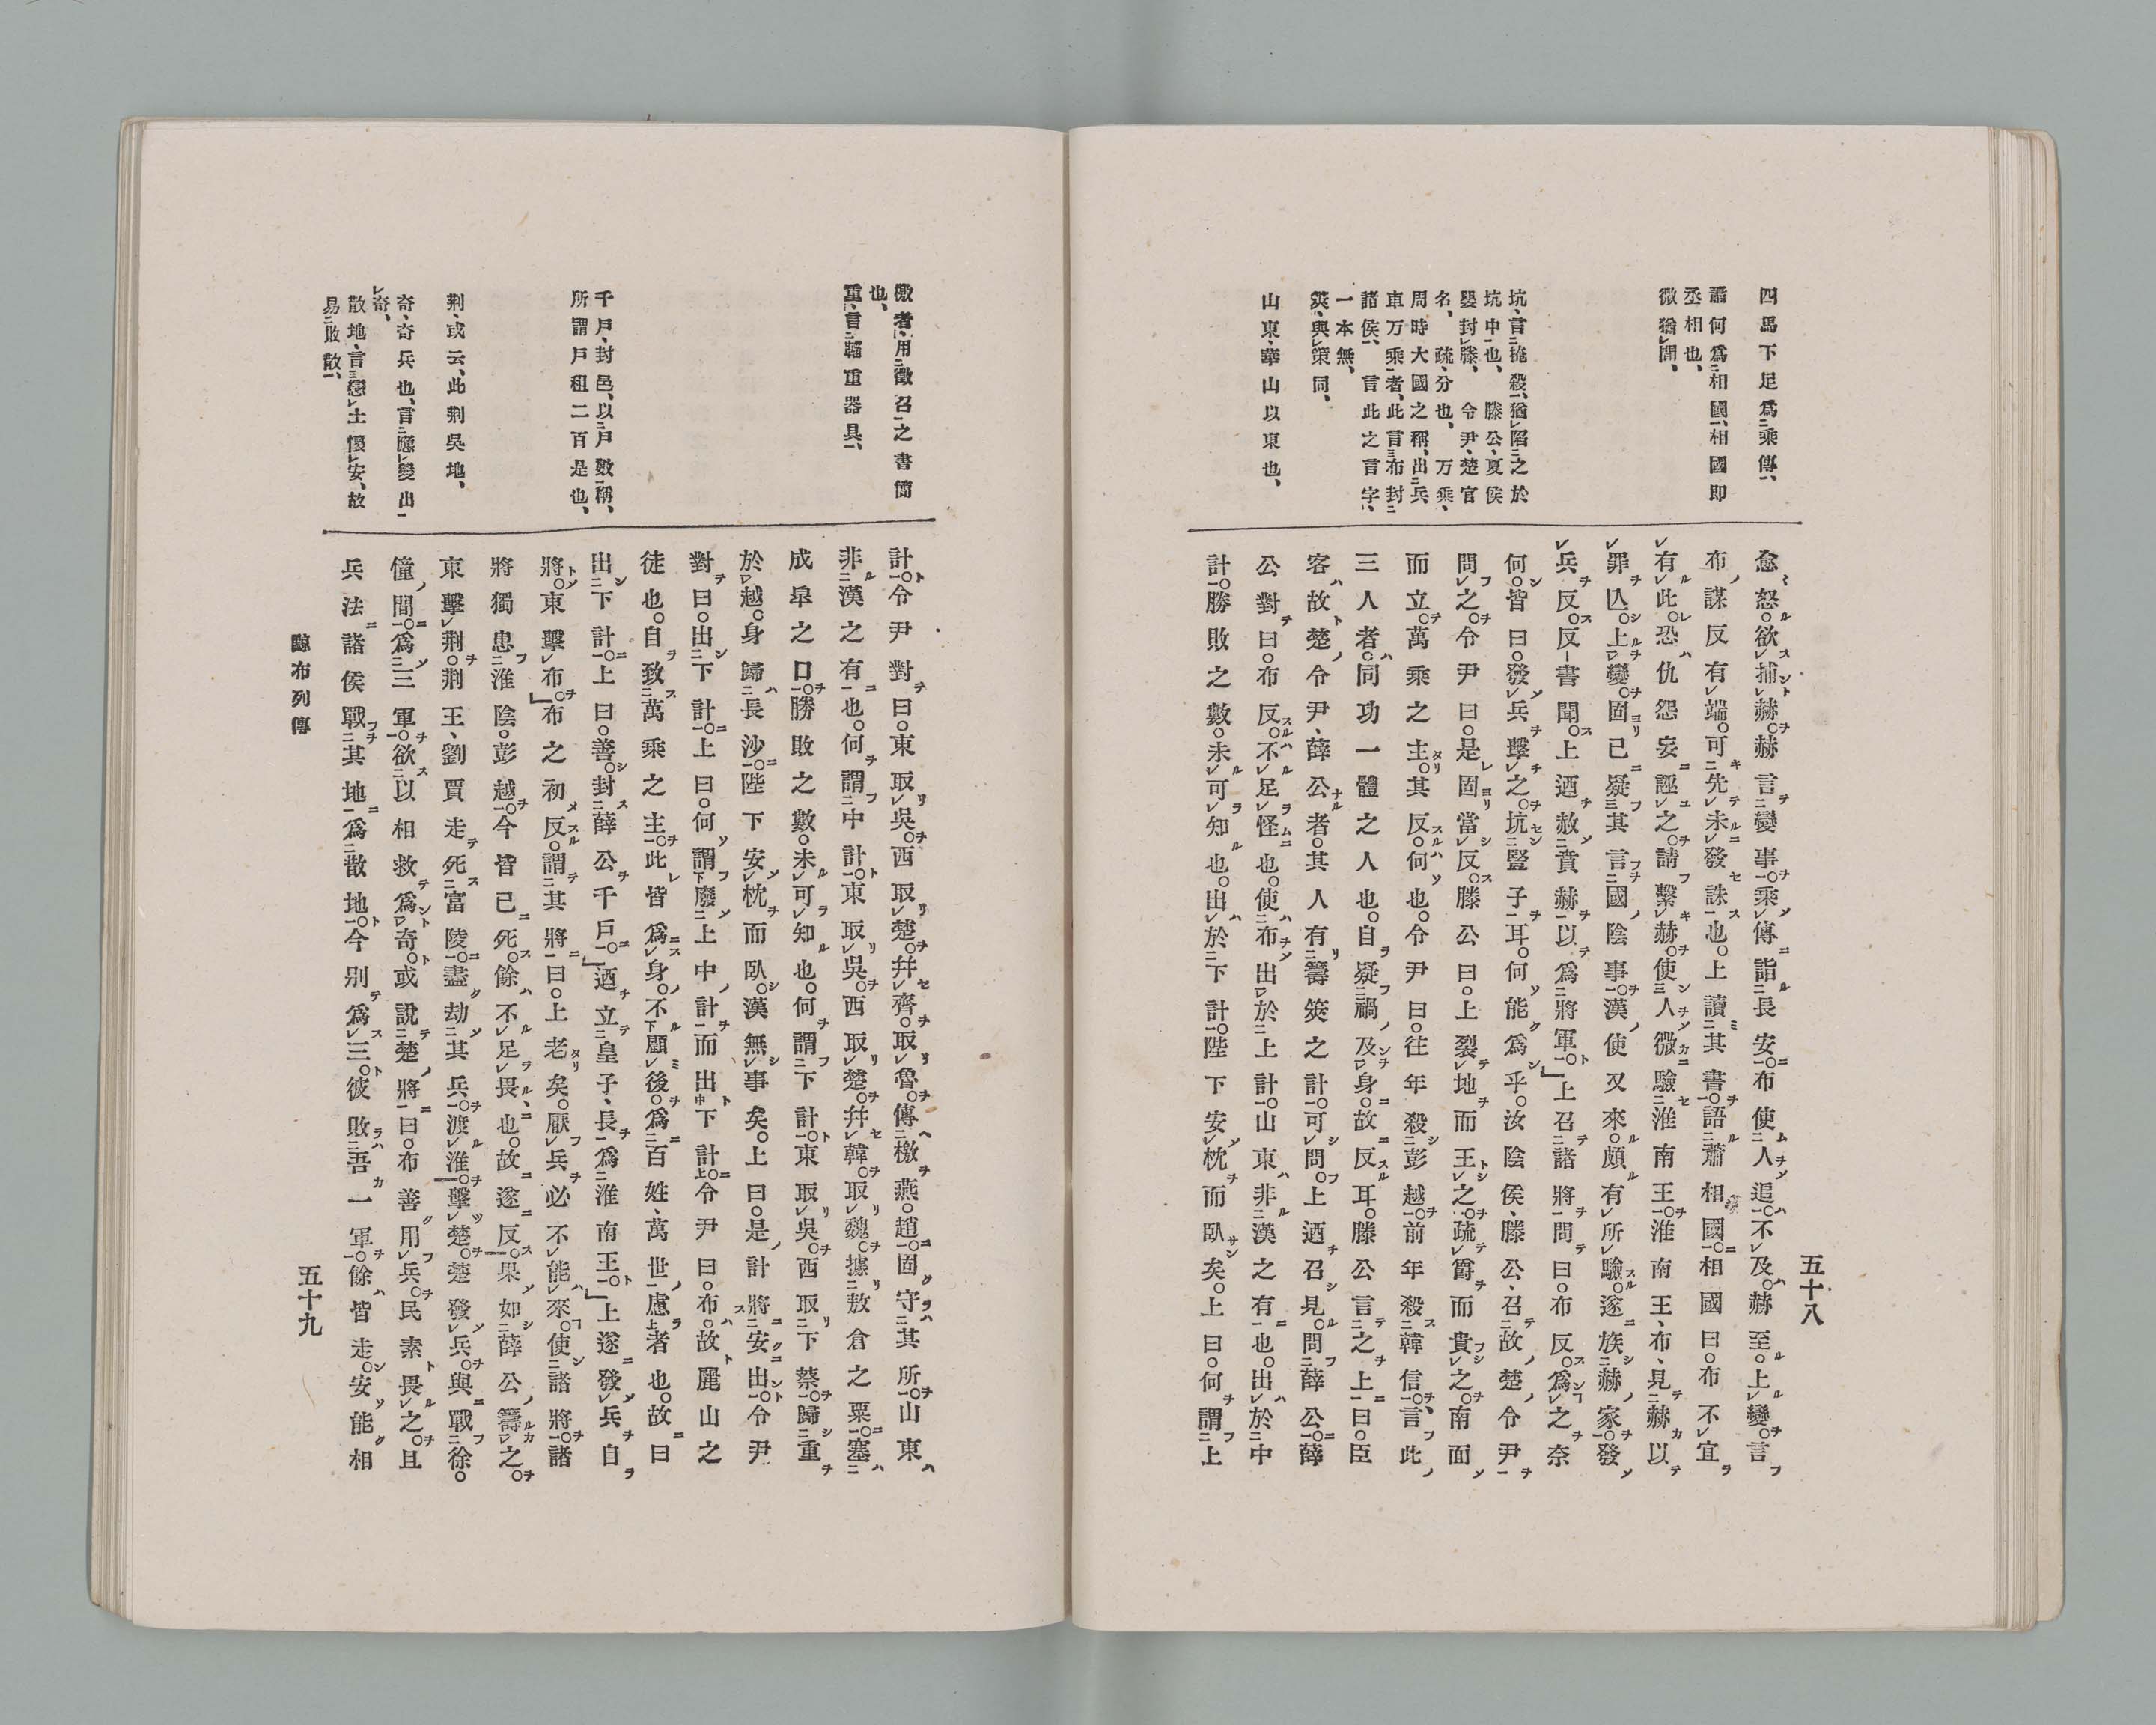 四馬下足爲乘傳、
蕭何爲相國、相國即
丞相也、
微猶間、
坑、言掩殺、猶陷之於
坑中也、　滕公、夏侯
嬰封滕、　令尹、楚官
名、　疏、分也、　万乘、
周時大國之稱、出兵
車万乘者、此言布封
諸侯、　言此之言字、
一本無、
筴、與策同、
山東、華山以東也、
愈怒。欲捕赫。赫言變事。乘傳詣長安。布使人追。不及。赫至。上變。言
布謀反有端。可先未發誅也。上讀其書。語蕭相國。相國曰。布不宜
有此。恐仇怨妄誣之。請繫赫。使人微驗淮南王。淮南王、布、見赫以
罪亾。上變。固已疑其言國陰事。漢使又來。頗有所驗。遂族赫家。發
兵反。反書聞。上迺赦賁赫以爲將軍。」上召諸將問曰。布反。爲之奈
何。皆曰。發兵擊之。坑豎子耳。何能爲乎。汝陰侯、滕公、召故楚令尹
問之。令尹曰。是固當反。滕公曰。上裂地而王之。疏爵而貴之。南面
而立。萬乘之主。其反。何也。令尹曰。往年殺彭越。前年殺韓信。言、此
三人者。同功一體之人也。自疑禍及身。故反耳。滕公言之上曰。臣
客故楚令尹、薛公者。其人有籌筴之計。可問。上迺召見。問薛公。薛
公對曰。布反。不足怪也。使布出於上計。山東非漢之有也。出於中
計。勝敗之數。未可知也。出於下計。陛下安枕而臥矣。上曰。何謂上
五十八
檄者、用徵召之書簡
也、
重、言輜重器具、
千戶、封邑、以戶數稱、
所謂戶租二百是也、
荆、或云、此荆吳地、
奇、奇兵也、言應變出
奇、
散地、言戀土懷安、故
易敗散、
計。令尹對曰。東取吳。西取楚。幷齊。取魯。傳檄燕。趙。固守其所。山東
非漢之有也。何謂中計。東取吳。西取楚。幷韓。取魏。據敖倉之粟。塞
成皐之口。勝敗之數。未可知也。何謂下計。東取吳。西取下蔡。歸重
於越。身歸長沙。陛下安枕而臥。漢無事矣。上曰。是計將安出。令尹
對曰。出下計。上曰。何謂廢上中計而出下計。令尹曰。布。故麗山之
徒也。自致萬乘之主。此皆爲身。不顧後。爲百姓、萬世慮者也。故曰
出下計。上曰。善。封薛公千戶。」迺立皇子、長爲淮南王。」上遂發兵自
將。東擊布。」布之初反。謂其將曰。上老矣。厭兵必不能來。使諸將。諸
將獨患淮陰。彭越。今皆已死。餘不足畏也。故遂反。果如薛公籌之。
東擊荆。荆王、劉賈走死富陵。盡劫其兵。渡淮。擊楚。楚發兵。與戰徐。
僮間。爲三軍。欲以相救爲奇。或說楚將曰。布善用兵。民素畏之。且
兵法諸侯戰其地爲散地。今别爲三。彼敗吾一軍。餘皆走。安能相
黥布列傳
五十九